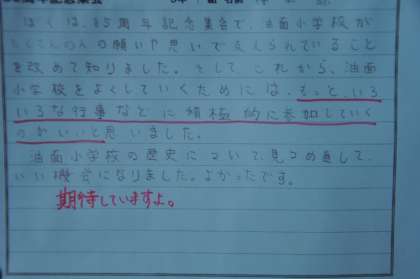 周年記念集会
ぼくは、85周年記念集会で、油面小学校が
たくさんの人の願いや思いで支えられていること
を改めて知りました。そして これから、油面
小学校をよくしていくためには、もっと、いろ
いろな行事などに積極的に参加していく
のがいいと思いました。
油面小学校の歴史について、見つめ直して、
いい機会になりました。よかったです。
期待していますよ。